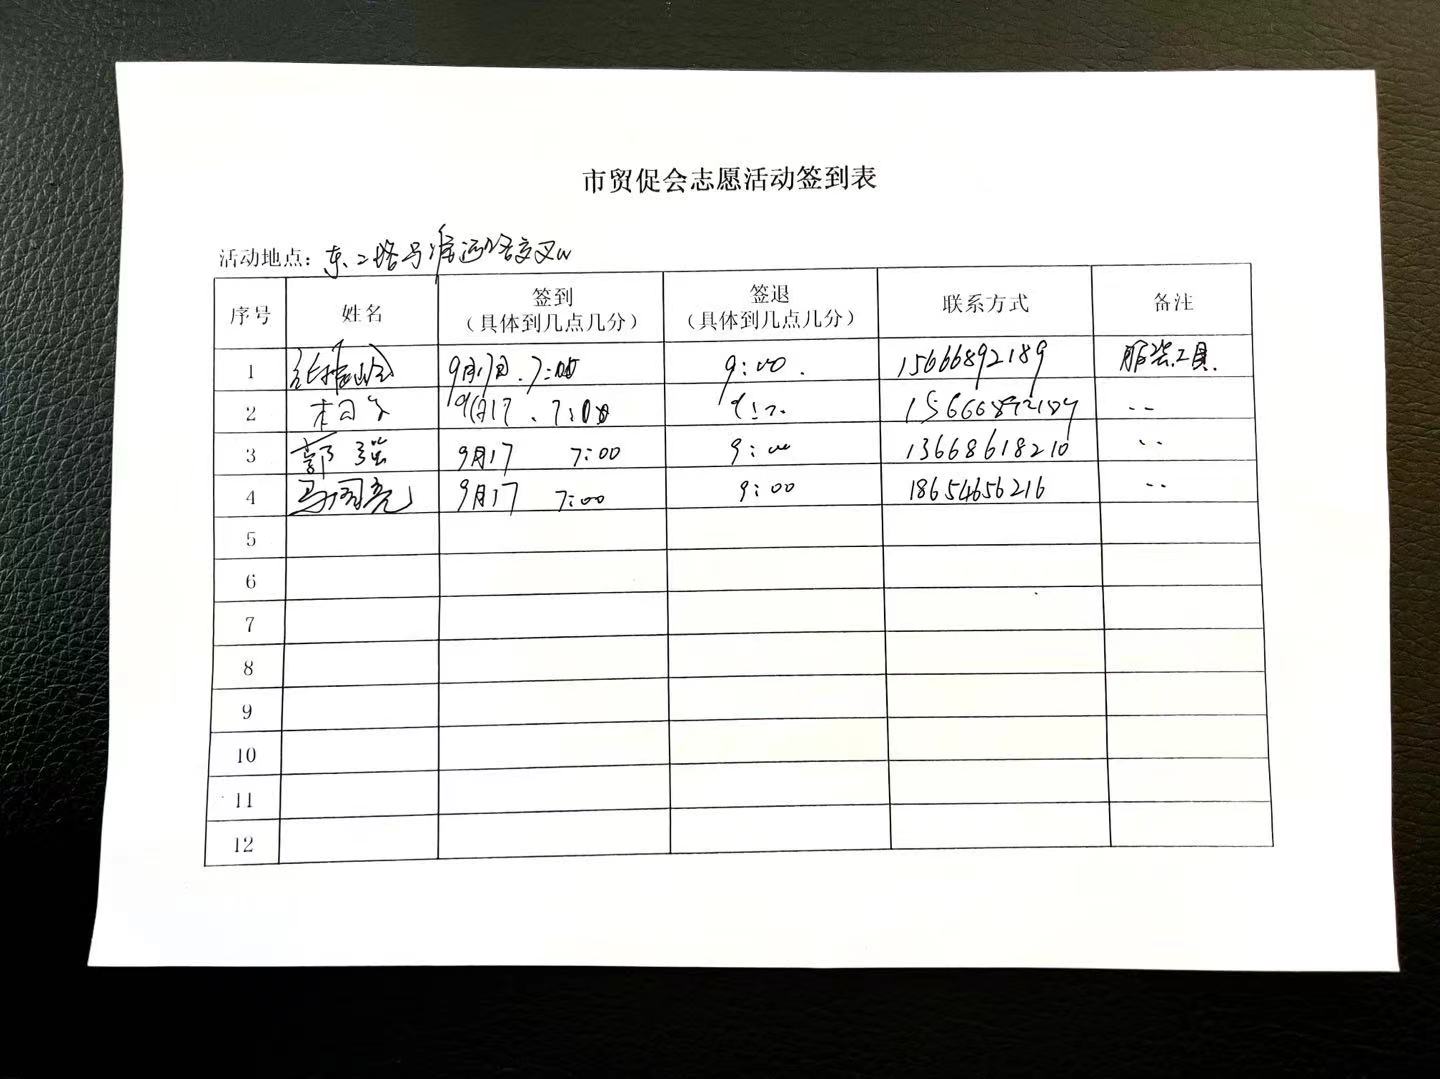 市贸促会志愿活动签到表
活动地点: 东二路与淮河路交叉
序号 姓名 签到 (具体到几点几分) 签退 (具体到几点几分) 联系方式 备注
1 9月17日. 7:00 9:00. 15666892189 服装工具.
2 9月17. 7:00 15666892189 ..
3 郭强 9月17 7:00 9:00 13668618210 ..
4 马国亮 9月17 7:00 9:00 18654656216 ..
5
6
7
8
9
10
11
12